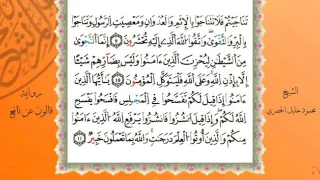 تَنَٰجَيْتُمْ فَلَا تَتَنَٰجَوْا۟ بِالْإِثْمِ وَالْعُدْوَٰنِ وَمَعْصِيَتِ الرَّسُولِ وَتَنَٰجَوْا۟
بِالْبِرِّ وَالتَّقْوَىٰ وَاتَّقُوا۟ اللَّهَ الَّذِي إِلَيْهِ تُحْشَرُونَ ٩ إِنَّمَا النَّجْوَىٰ
مِنَ الشَّيْطَٰنِ لِيُحْزِنَ الَّذِينَ ءَامَنُوا۟ وَلَيْسَ بِضَارِّهِمْ شَيْـًٔا
إِلَّا بِإِذْنِ اللَّهِ وَعَلَى اللَّهِ فَلْيَتَوَكَّلِ الْمُؤْمِنُونَ ١٠ يَٰأَيُّهَا الَّذِينَ
ءَامَنُوا۟ إِذَا قِيلَ لَكُمْ تَفَسَّحُوا۟ فِي الْمَجْلِسِ فَافْسَحُوا۟ يَفْسَحِ
اللَّهُ لَكُمْ وَإِذَا قِيلَ انشُزُوا۟ فَانشُزُوا۟ يَرْفَعِ اللَّهُ الَّذِينَ ءَامَنُوا۟
مِنكُمْ وَالَّذِينَ أُوتُوا۟ الْعِلْمَ دَرَجَٰتٍ وَاللَّهُ بِمَا تَعْمَلُونَ خَبِيرٌ ١١
الشيخ
محمود خليل الحصري
رواية
قالون عن نافع